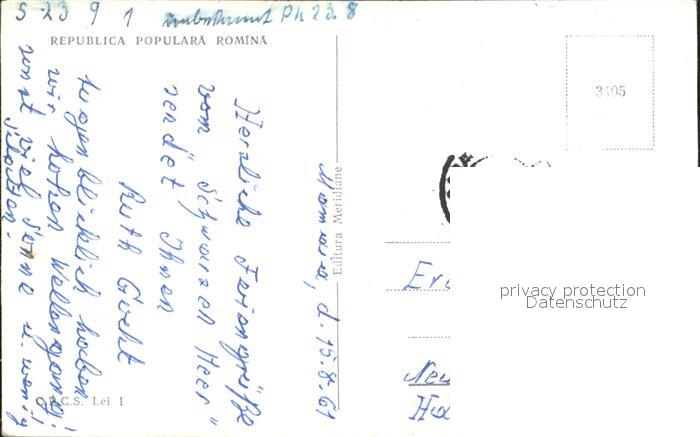 S 23 9 1 unbekannt Ph 23.8
REPUBLICA POPULARĂ ROMÎNĂ
Mamaia, d. 15.8.61
Herzliche Feriengrüße
vom "Schwarzen Meer"
sendet Ihnen
Ruth
Augenblicklich haben
wir hohen Wellengang!
sonst viel Sonne u. wenig
C.P.C.S. Lei 1
Editura Meridiane
3405
privacy protection
Datenschutz